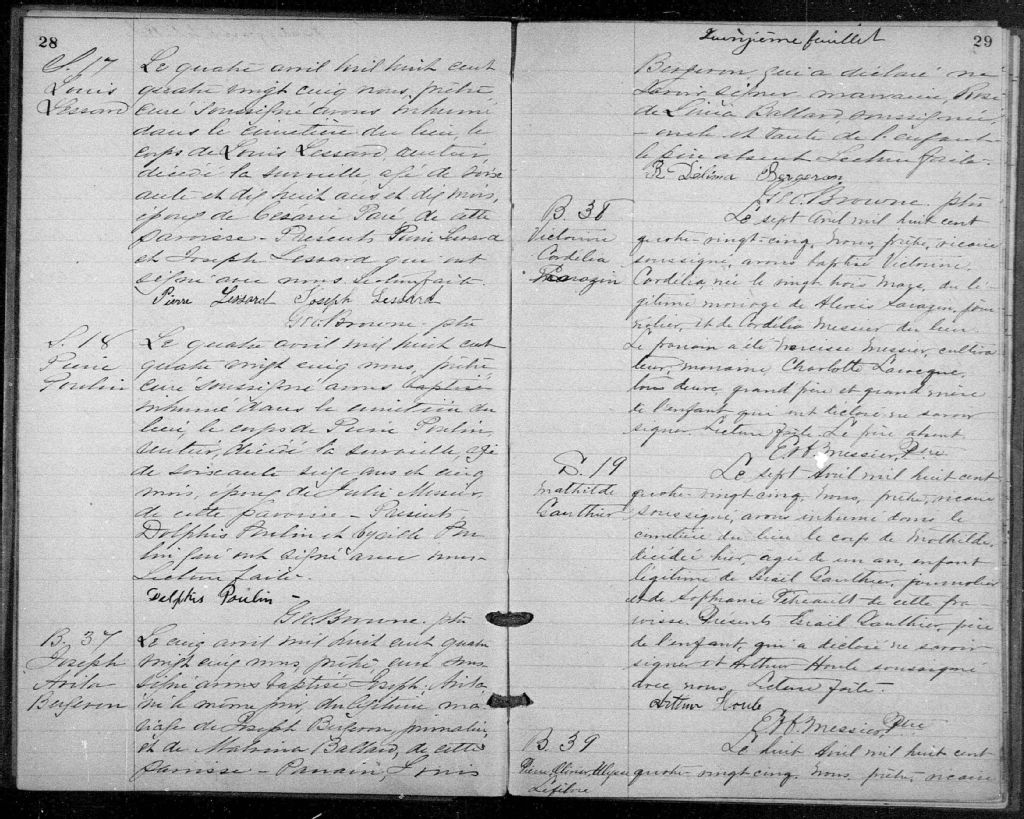 28
S. 17
Louis
Lessard
Le quatre avril mil huit cent
quatre vingt cinq nous, prêtre
curé soussigné avons inhumé
dans le cimetière du lieu, le
corps de Louis Lessard, rentier
décédé la surveille, agé de soix
ante et dix huit ans et dix mois,
époux de Césarie Paré de cette
paroisse - Présents Pierre Lessard
et Joseph Lessard qui ont
signé avec nous. Lecture faite
Pierre Lessard Joseph Lessard
Geo. Browne ptre
S. 18
Pierre
Poulin
Le quatre avril mil huit cent
quatre vingt cinq nous, prêtre
curé soussigné avons baptisé
inhumé dans le cimetière du
lieu, le corps de Pierre Poulin,
rentier, décédé la surveille, agé
de soixante seize ans et cinq
mois, époux de Julie
de cette paroisse - Présents,
Delphis Poulin et Pou
lin qui ont signé avec nous
Lecture faite.
Delphis Poulin -
Geo. Browne, ptre
B. 37
Joseph
Avila
Bergeron
Le cinq avril mil huit cent quatre
vingt cinq nous, prêtre, curé sous
signé avons baptisé Joseph, Avila,
né le même jour, du légitime ma
riage de Joseph Bergeron journalier,
et de Malvina Ballard, de cette
paroisse - Parrain, Louis
Quinzième feuillet
29
Bergeron, qui a déclaré ne
savoir signer, marraine, Rose
de Lima Ballard soussignée,
oncle et tante de l'enfant
le père absent Lecture faite.
R. Délima Bergeron
Geo. Browne ptre
B. 38
Victorine
Cordelia
Sarazin
Le sept Avril mil huit cent
quatre-vingt-cinq, Nous, prêtre, vicaire
soussigné, avons baptisé Victorine
Cordelia, née le vingt trois mars, du lé-
gitime mariage de Alexis Sarazin, jour-
nalier, et de Cordelia Messier du lieu.
Le parrain a été Narcisse Messier, cultiva
teur, marraine Charlotte Larocque,
tous deux, grand père et grand mère
de l'enfant qui ont déclaré ne savoir
signer. Lecture faite. Le père absent.
Messier, Ptre
S. 19
Mathilde
Gauthier
Le sept Avril mil huit cent
quatre-vingt-cinq, Nous, prêtre, vicaire
soussigné, avons inhumé dans le
cimetière du lieu le corps de Mathilde,
décédée hier, agée de un an, enfant
légitime de Israël Gauthier, journalier
et de Sophranie Thériault de cette pa-
roisse. Présents Israël Gauthier, père
de l'enfant, qui a déclaré ne savoir
signer et Arthur Houle soussigné
avec nous, Lecture faite.
Arthur Houle
Messier, Ptre
B. 39
Pierre, Olivier, Ulysse
Lefebvre
Le huit Avril mil huit cent
quatre-vingt-cinq, Nous, prêtre, vicaire